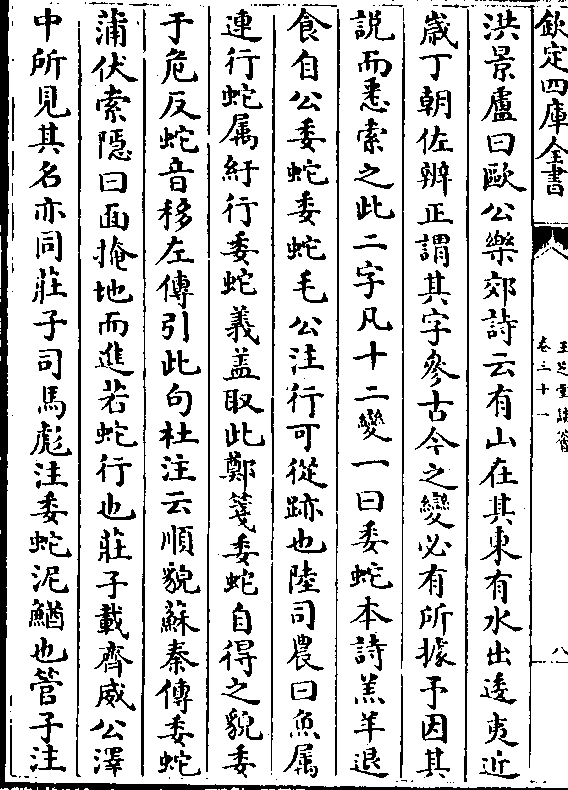 欽定四庫全書
卷三十一
八
洪景盧曰歐公樂郊詩云有山在其東有水出逶夷近
嵗丁朝佐辨正謂其字參古今之變必有所據予因其
説而悉索之此二字凡十二變一曰委蛇本詩羔羊退
食自公委蛇委蛇毛公注行可從跡也陸司農曰魚属
連行蛇属紆行委蛇義盖取此鄭箋委蛇自得之貌委
于危反蛇音移左傳引此句杜注云順貌蘇秦傳委蛇
蒲伏索隠曰面掩地而進若蛇行也莊子載齊威公澤
中所見其名亦同莊子司馬彪注委蛇泥鰌也管子注